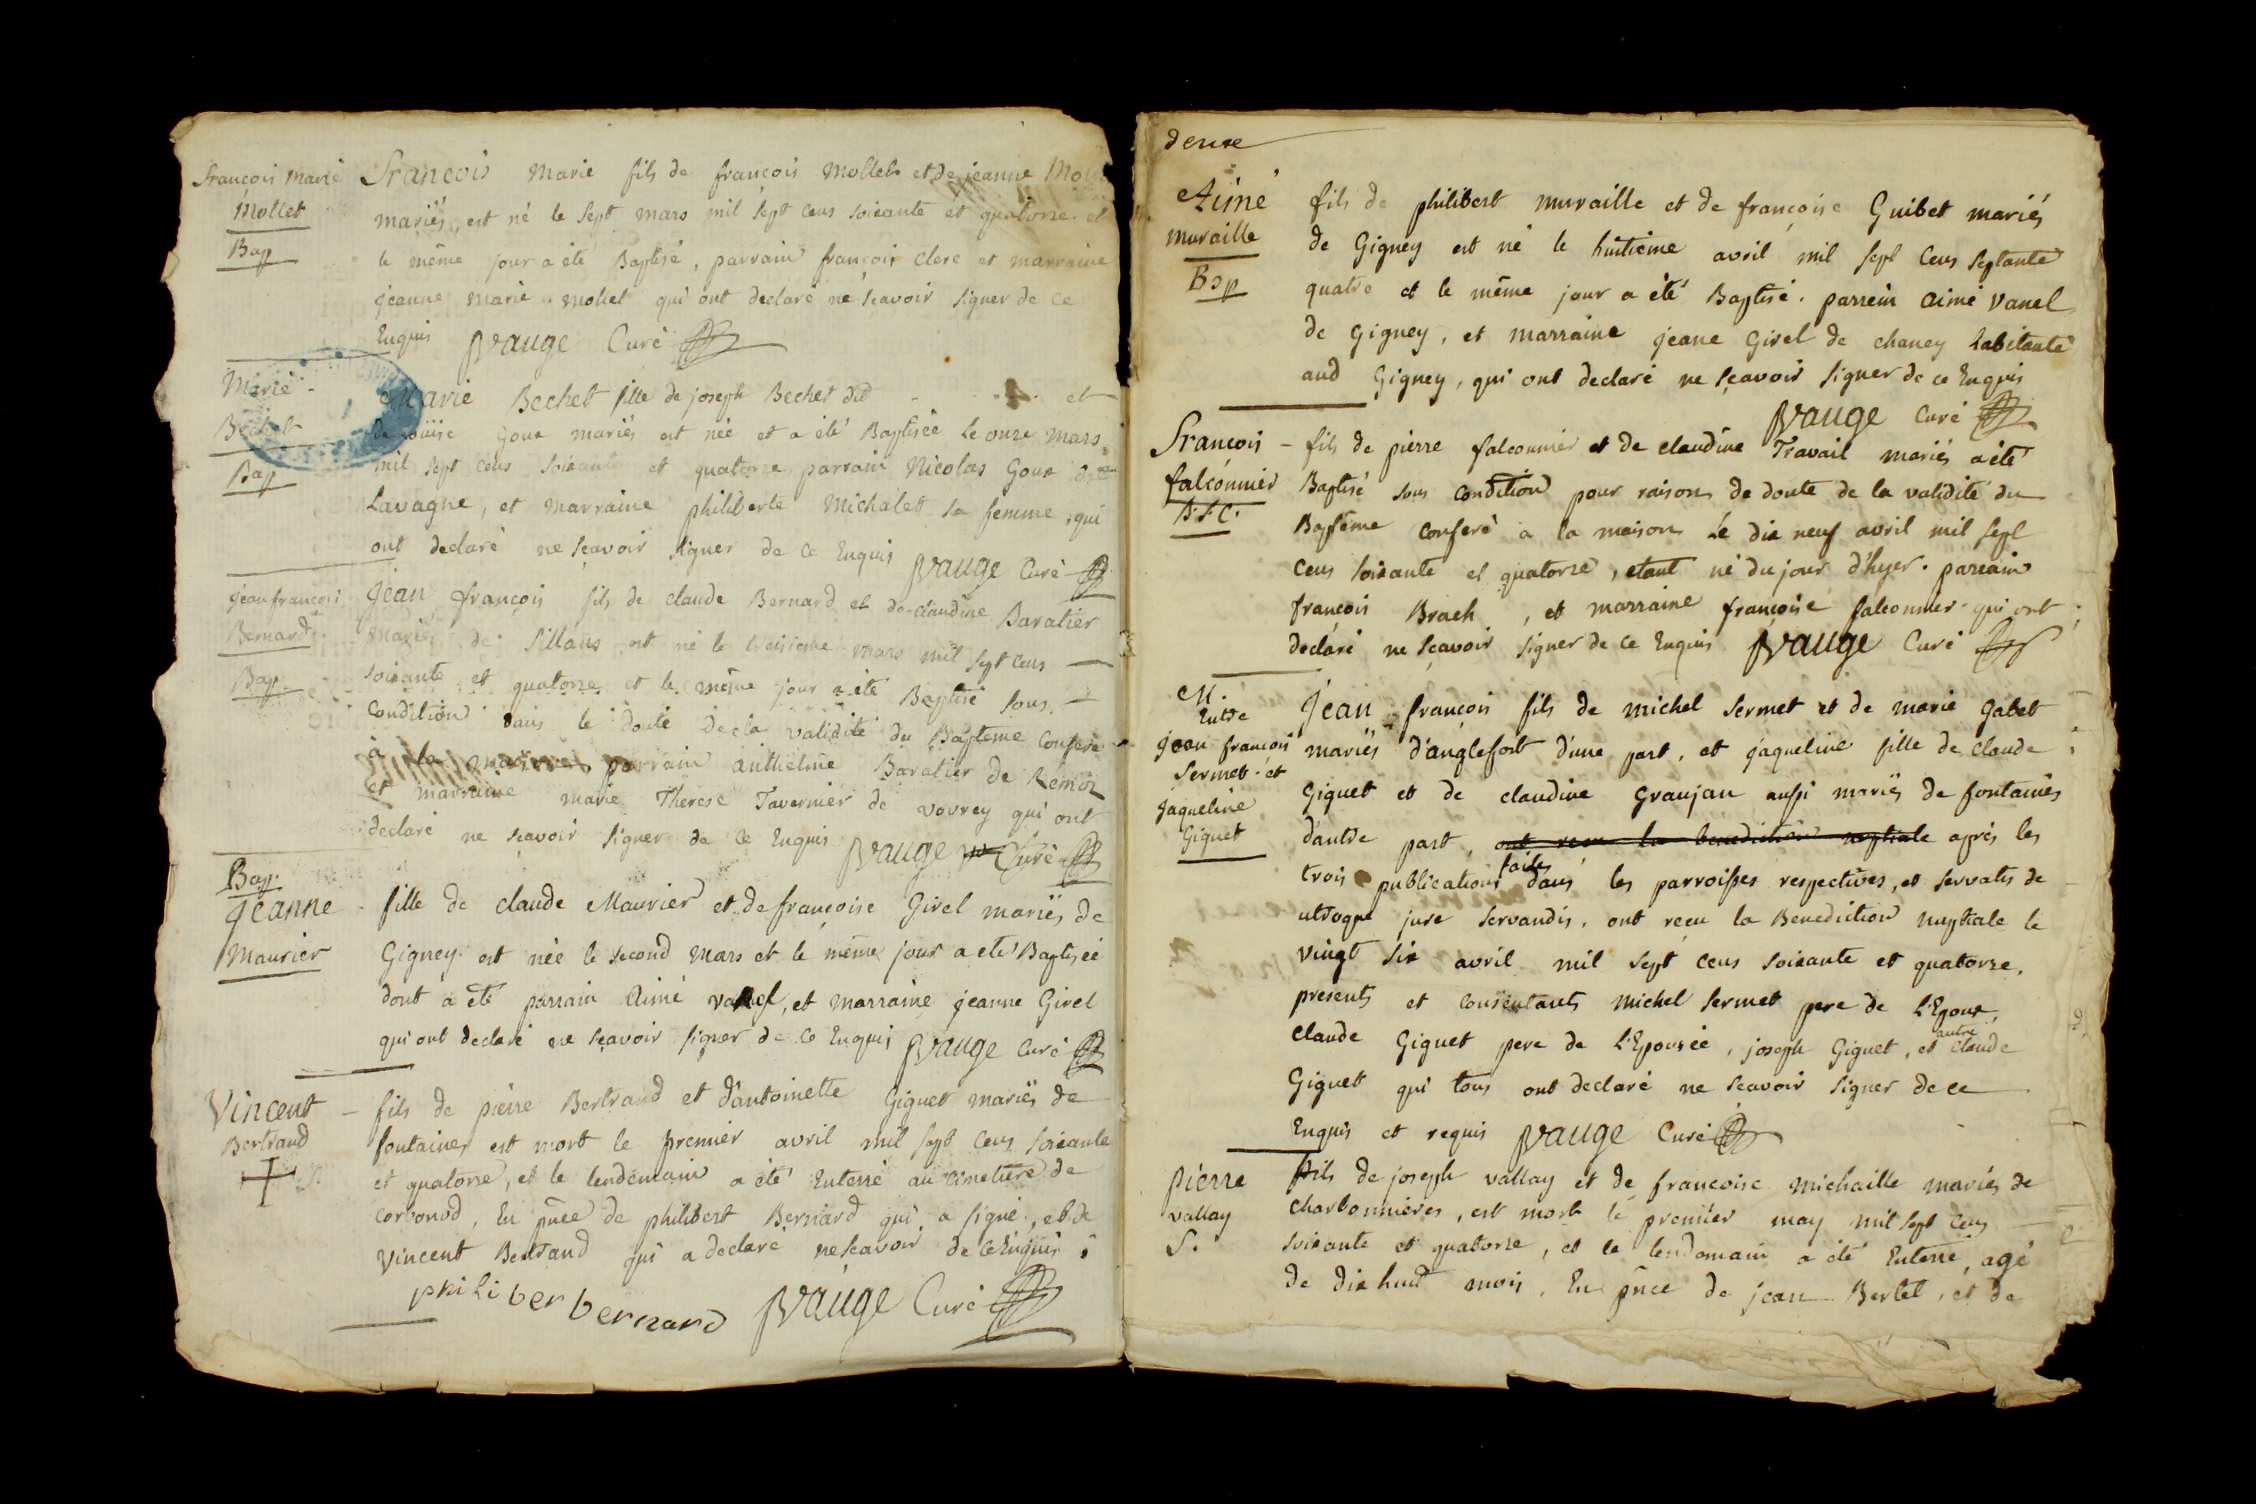 François Marie
Mollet
Bap
François Marie fils de françois Mollet et de jeanne
mariés, est né le sept mars mil sept cens soixante et quatorze et
le même jour a été Baptisé, parrain françois Clerc et marraine
jeanne marie mollet qui ont declaré ne sçavoir signer de ce
Enquis Vauge Curé
Marie
Bechet
Bap
Marie Bechet fille de joseph Bechet dit et
de Loüise Goux mariés est née et a été Baptisée le onze mars
mil sept cens soixante et quatorze parrain Nicolas Goux
Lavagne, et marraine philiberte Michalet sa femme, qui
ont declaré ne sçavoir signer de ce Enquis Vauge Curé
jean françois
Bernard
Bap.
Jean françois fils de claude Bernard et de claudine Baratier
mariés de Sillans est né le troisieme mars mil sept cens
soixante et quatorze et le même jour a été Baptisé sous
condition dans le doute de la validité du Bapteme conferé
à la maison, parrain anthelme Baratier de Remoz
et marraine marie Therese Tavernier de vovrey qui ont
declaré ne sçavoir signer de ce Enquis Vauge Curé
Bap.
Jeanne
Maurier
fille de claude Maurier et de françoise Girel mariés de
Gigney est née le second mars et le même jour a été Baptisée
dont a été parrain Aimé vanel, et marraine jeanne Girel
qui ont declaré ne sçavoir signer de ce Enquis Vauge Curé
Vincent
Bertrand
S.
fils de pierre Bertrand et d'antoinette Giguet mariés de
fontaines est mort le premier avril mil sept cens soixante
et quatorze, et le lendemain a été Enterré au cimetiere de
corbonod, En pñce de philibert Bernard qui a signé, et de
Vincent Bertrand qui a declaré ne sçavoir de ce Enquis
philiber bernard Vauge Curé
deux
Aimé
muraille
Bap
fils de philibert muraille et de françoise Guibet mariés
de Gigney est né le huitieme avril mil sept cens septante
quatre et le même jour a été Baptisé. parrein aimé vanel
de Gigney, et marraine jeane Girel de chaney habitante
aud Gigney, qui ont declaré ne sçavoir signer de ce Enquis
Vauge Curé
François
falconnier
B.S.C.
fils de pierre falconnier et de claudine Travail mariés a été
Baptisé sous condition pour raison de doute de la validité du
Baptême conferé a la maison le dix neuf avril mil sept
cens soixante et quatorze, étant né du jour d'hyer. parrain
françois Brach, et marraine françoise falconnier qui ont
declaré ne sçavoir signer de ce Enquis Vauge Curé
M.
Entre
jean françois
Sermet et
jaqueline
Giguet
Jean françois fils de michel Sermet et de marie Gabet
mariés d'anglefort d'une part, et jaqueline fille de claude
Giguet et de claudine Granjan aussi mariés de fontaines
d'autre part, ont reçu la benediction nuptiale aprés les
trois publications faites dans les parroisses respectives, et servatis de
utroque jure servandis, ont reçu la Benediction nuptiale le
vingt six avril mil sept cens soixante et quatorze,
presents et consentants michel Sermet pere de l'Epoux,
claude Giguet pere de l'Epousée, joseph Giguet, et autre claude
Giguet qui tous ont declaré ne sçavoir signer de ce
Enquis et requis Vauge Curé
pierre
vallay
S.
fils de joseph vallay et de françoise michaille mariés de
charbonnieres, est mort le premier may mil sept cens
soixante et quatorze, et le lendemain a été Enterré, agé
de dix huit mois, En pñce de jean Bertet, et de